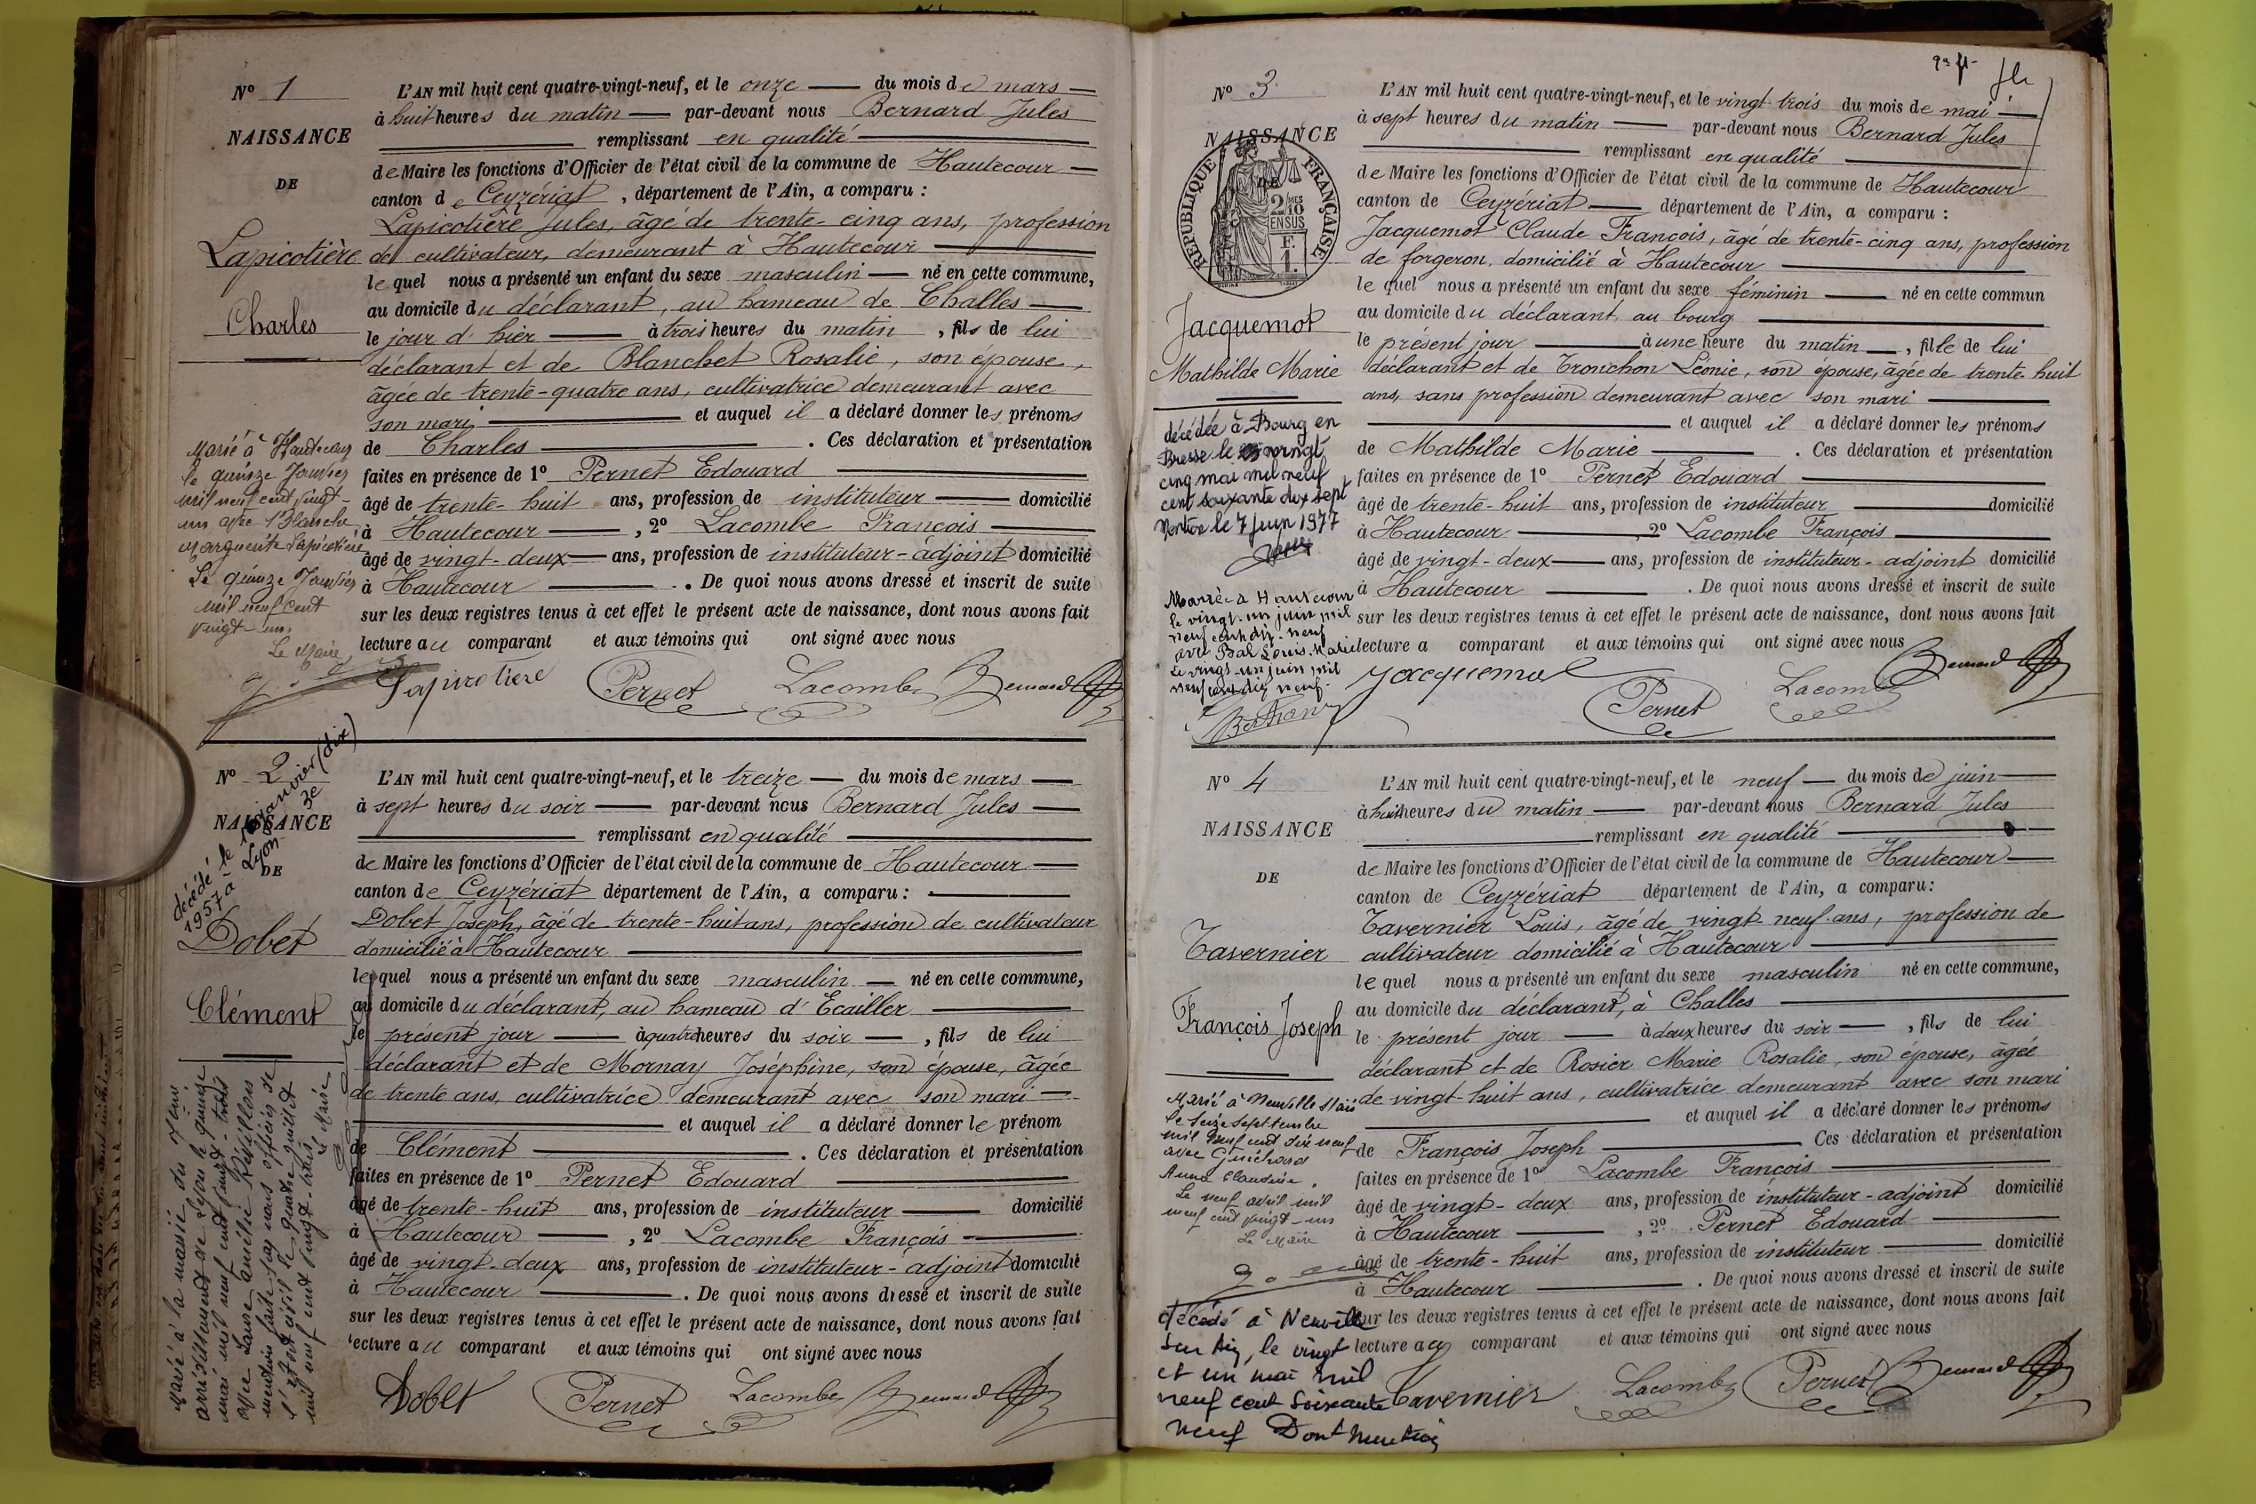 N° 1
NAISSANCE
DE
Lapicotière
Charles
L'AN mil huit cent quatre-vingt-neuf, et le onze du mois de mars
à huit heures du matin par-devant nous Bernard Jules
remplissant en qualité
de Maire les fonctions d'Officier de l'état civil de la commune de Hautecour
canton de Ceyzériat, département de l'Ain, a comparu :
Lapicotière Jules, âgé de trente-cinq ans, profession
de cultivateur, demeurant à Hautecour
lequel nous a présenté un enfant du sexe masculin né en cette commune,
au domicile du déclarant, au hameau de Challes
le jour d'hier à trois heures du matin, fils de lui
déclarant et de Blanchet Rosalie, son épouse,
âgée de trente-quatre ans, cultivatrice demeurant avec
son mari et auquel il a déclaré donner les prénoms
de Charles. Ces déclaration et présentation
faites en présence de 1° Pernet Edouard
âgé de trente-huit ans, profession de instituteur domicilié
à Hautecour, 2° Lacombe François
âgé de vingt-deux ans, profession de instituteur-adjoint domicilié
à Hautecour. De quoi nous avons dressé et inscrit de suite
sur les deux registres tenus à cet effet le présent acte de naissance, dont nous avons fait
lecture au comparant et aux témoins qui ont signé avec nous
Lapicotière Pernet Lacombe Bernard
Marié à Hautecour
le quinze Janvier
mil neuf cent vingt-
un avec Blanche
Marguerite Lapicotière
Le quinze Janvier
mil neuf cent
vingt-un.
Le Maire,
N° 2
NAISSANCE
DE
Dobet
Clément
décédé le janvier (dix)
1957 à Lyon 3e
L'AN mil huit cent quatre-vingt-neuf, et le treize du mois de mars
à sept heures du soir par-devant nous Bernard Jules
remplissant en qualité
de Maire les fonctions d'Officier de l'état civil de la commune de Hautecour
canton de Ceyzériat département de l'Ain, a comparu :
Dobet Joseph, âgé de trente-huit ans, profession de cultivateur
domicilié à Hautecour
lequel nous a présenté un enfant du sexe masculin né en cette commune,
au domicile du déclarant, au hameau d'Ecailler
le présent jour à quatre heures du soir, fils de lui
déclarant et de Mornay Joséphine, son épouse, âgée
de trente ans, cultivatrice demeurant avec son mari
et auquel il a déclaré donner le prénom
de Clément. Ces déclaration et présentation
faites en présence de 1° Pernet Edouard
âgé de trente-huit ans, profession de instituteur domicilié
à Hautecour, 2° Lacombe François
âgé de vingt-deux ans, profession de instituteur-adjoint domicilié
à Hautecour. De quoi nous avons dressé et inscrit de suite
sur les deux registres tenus à cet effet le présent acte de naissance, dont nous avons fait
lecture au comparant et aux témoins qui ont signé avec nous
Dobet Pernet Lacombe Bernard
Marié à la mairie du
arrondissement de Lyon le quinze
mai mil neuf cent vingt-trois
avec Laure Amélie
mention faite par nous officier de
l'état civil le quatre juillet
mil neuf cent vingt-trois
Le Maire
N° 3
NAISSANCE
DE
RÉPUBLIQUE FRANÇAISE
2/10 EN SUS
F. 1.
Jacquemot
Mathilde Marie
L'AN mil huit cent quatre-vingt-neuf, et le vingt-trois du mois de mai
à sept heures du matin par-devant nous Bernard Jules
remplissant en qualité
de Maire les fonctions d'Officier de l'état civil de la commune de Hautecour
canton de Ceyzériat département de l'Ain, a comparu :
Jacquemot Claude François, âgé de trente-cinq ans, profession
de forgeron, domicilié à Hautecour
lequel nous a présenté un enfant du sexe féminin né en cette commun
au domicile du déclarant au bourg
le présent jour à une heure du matin, fille de lui
déclarant et de Tronchon Léonie, son épouse, âgée de trente-huit
ans, sans profession demeurant avec son mari
et auquel il a déclaré donner les prénoms
de Mathilde Marie. Ces déclaration et présentation
faites en présence de 1° Pernet Edouard
âgé de trente-huit ans, profession de instituteur domicilié
à Hautecour 2° Lacombe François
âgé de vingt-deux ans, profession de instituteur-adjoint domicilié
à Hautecour. De quoi nous avons dressé et inscrit de suite
sur les deux registres tenus à cet effet le présent acte de naissance, dont nous avons fait
lecture a comparant et aux témoins qui ont signé avec nous
Jacquemot Pernet Lacombe Bernard
décédée à Bourg en
Bresse le vingt
cinq mai mil neuf
cent soixante dix sept
Mention le 7 Juin 1977
Mariée à Hautecour
le vingt-un juin mil
neuf cent dix-neuf
avec Bal Louis Marie
Le vingt-un juin mil
neuf cent dix neuf.
N° 4
NAISSANCE
DE
Tavernier
François Joseph
L'AN mil huit cent quatre-vingt-neuf, et le neuf du mois de juin
à huit heures du matin par-devant nous Bernard Jules
remplissant en qualité
de Maire les fonctions d'Officier de l'état civil de la commune de Hautecour
canton de Ceyzériat département de l'Ain, a comparu :
Tavernier Louis, âgé de vingt neuf ans, profession de
cultivateur domicilié à Hautecour
lequel nous a présenté un enfant du sexe masculin né en cette commune,
au domicile du déclarant, à Challes
le présent jour à deux heures du soir, fils de lui
déclarant et de Rosier Marie Rosalie, son épouse, âgée
de vingt-huit ans, cultivatrice demeurant avec son mari
et auquel il a déclaré donner les prénoms
de François Joseph Ces déclaration et présentation
faites en présence de 1° Lacombe François
âgé de vingt-deux ans, profession de instituteur-adjoint domicilié
à Hautecour, 2° Pernet Edouard
âgé de trente-huit ans, profession de instituteur domicilié
à Hautecour. De quoi nous avons dressé et inscrit de suite
sur les deux registres tenus à cet effet le présent acte de naissance, dont nous avons fait
lecture au comparant et aux témoins qui ont signé avec nous
Tavernier Lacombe Pernet Bernard
Marié à Neuville s/Ain
le seize septembre
mil neuf cent dix neuf
avec
Anna Claudine.
Le neuf avril mil
neuf cent vingt-un
Le Maire
décédé à Neuville
sur Ain, le vingt
et un mai mil
neuf cent soixante
neuf Dont mention